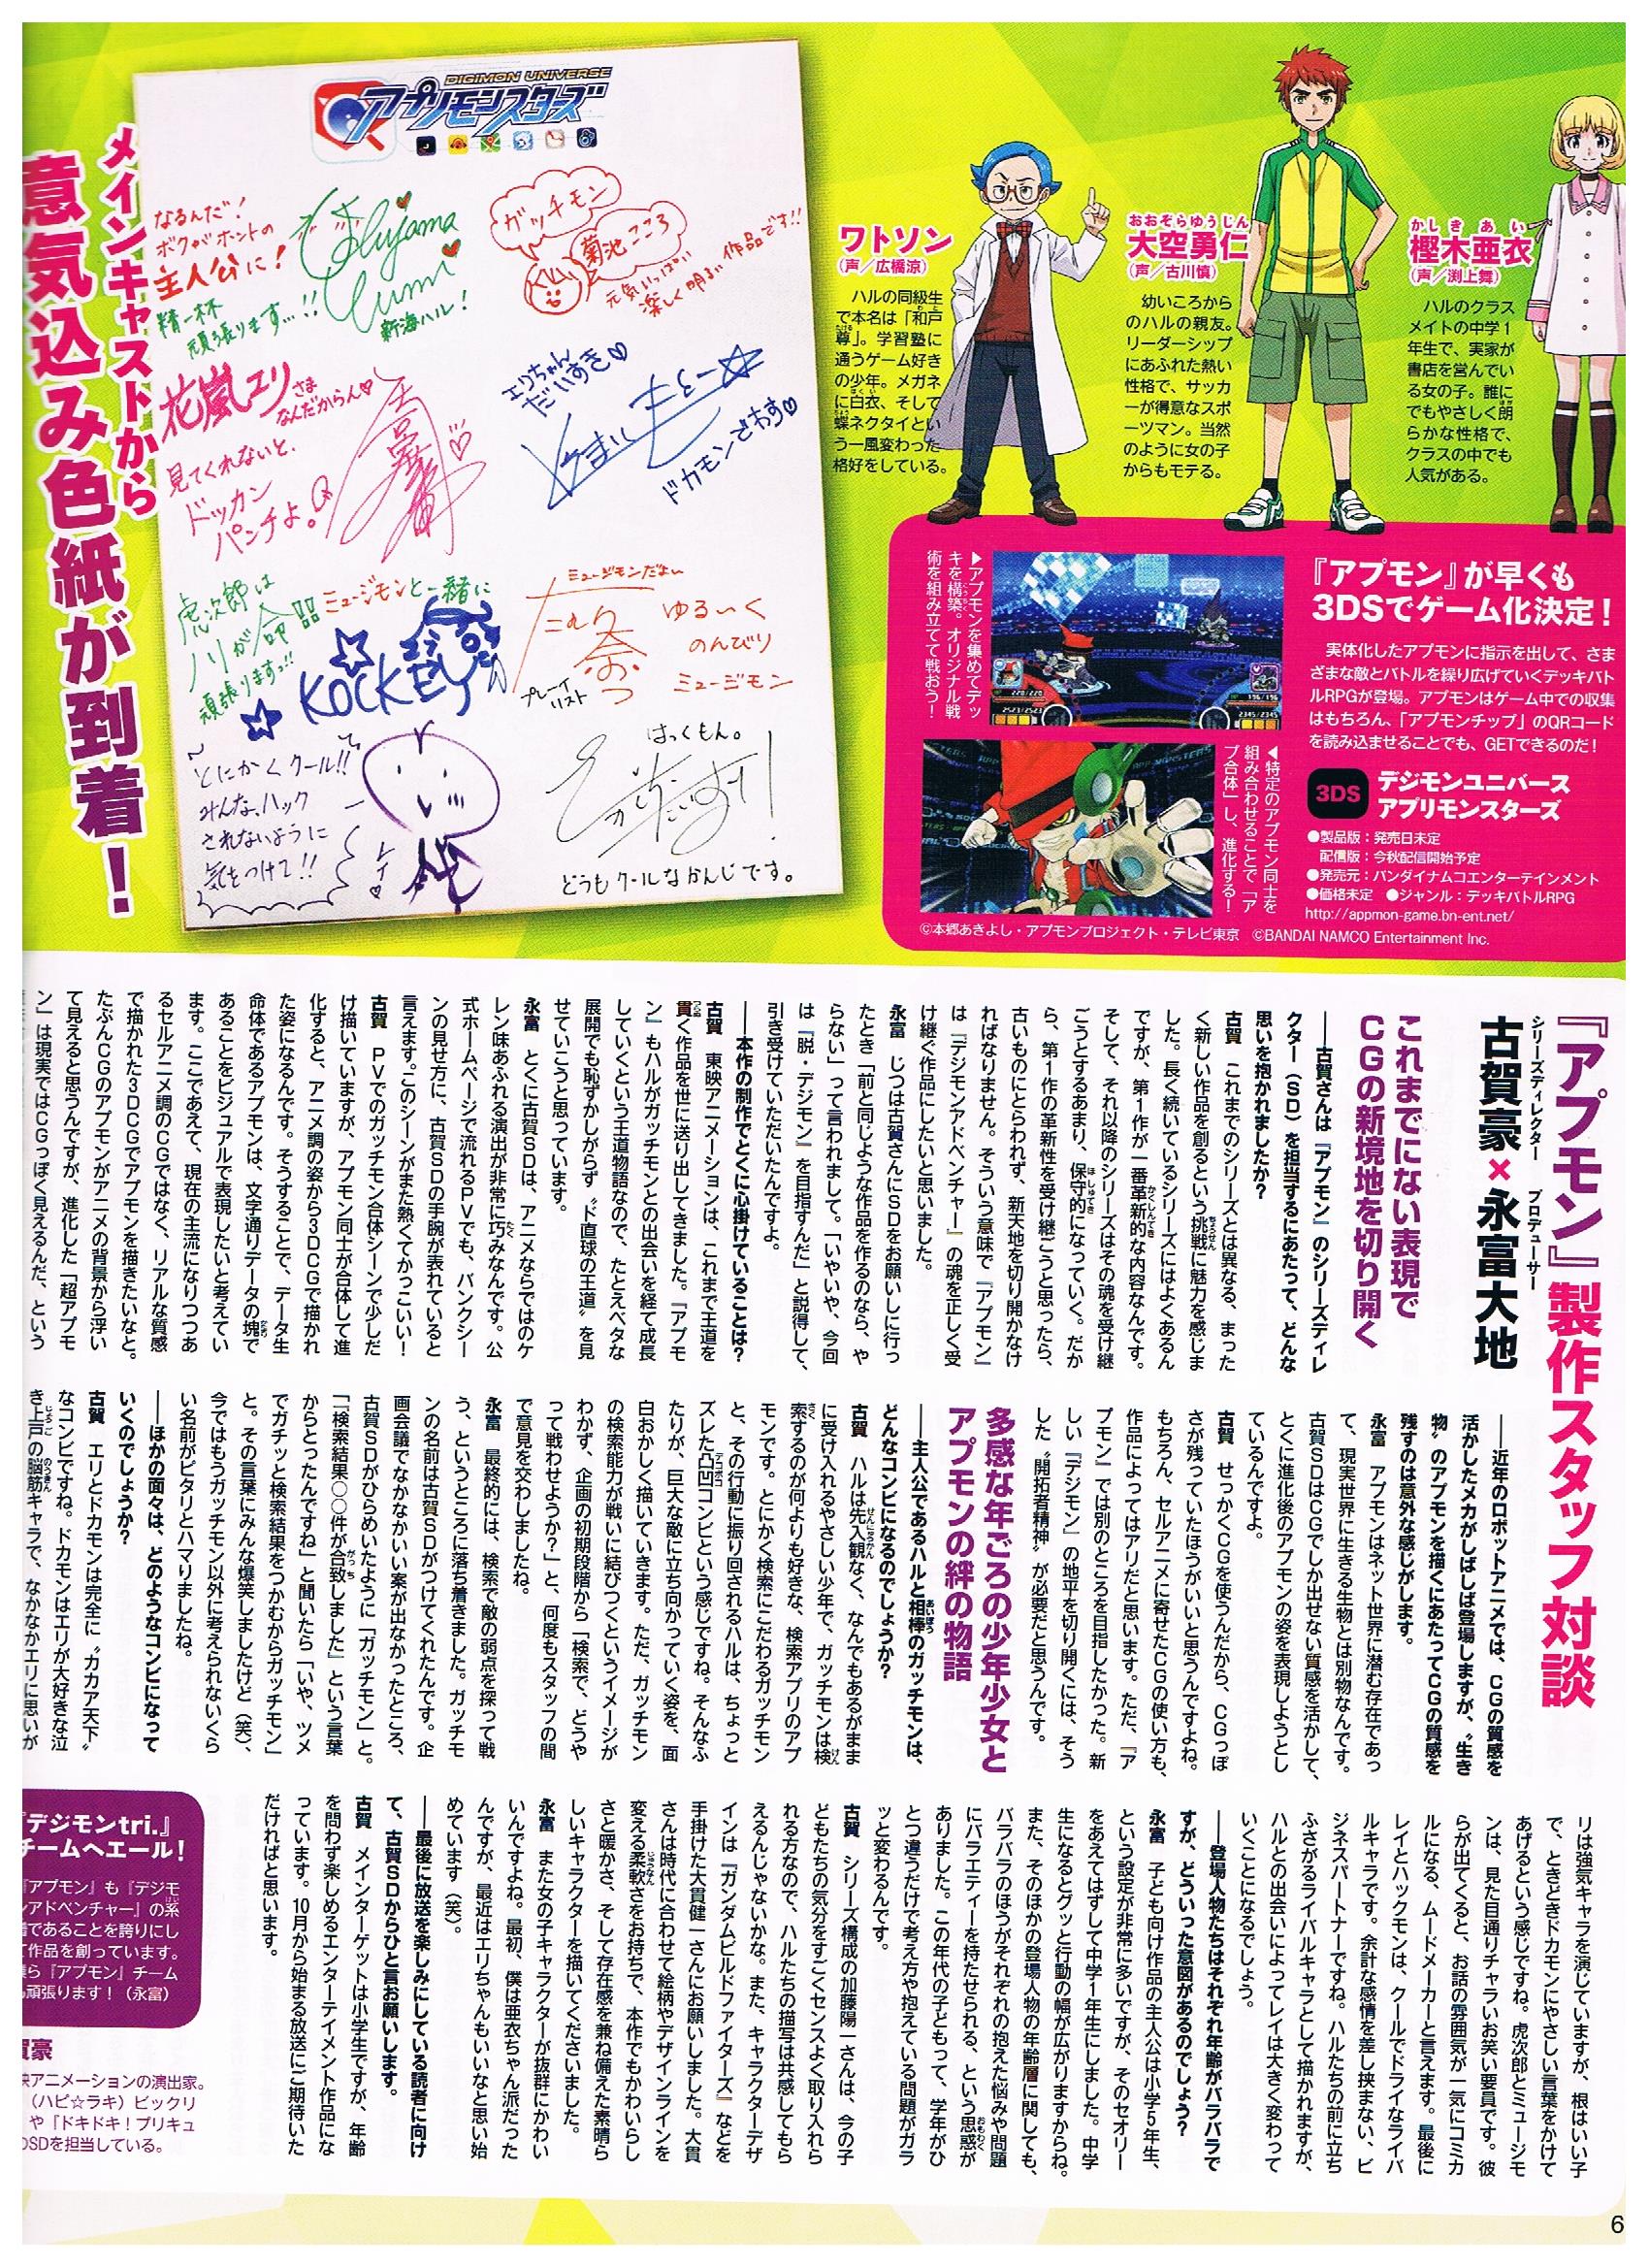 メインキャストから
意気込み色紙が到着！
DIGIMON UNIVERSE
アプリモンスターズ
なるんだ！
ボクがホントの
主人公に！
精一杯
頑張ります…!!
新海ハル！
ガッチモン
菊池こころ
元気いっぱい
楽しく明るい作品です!!
花嵐エリさま
なんだからん♡
見てくれないと、
ドッカン
パンチよ！
エリちゃん
だいすき♡
ドカモンでやす♡
虎次郎は
ノリが命!!
頑張りますっ!!
ミュージモンと一緒に
KOCKEY
ミュージモンだよい
プレイ
リスト
ゆる〜く
のんびり
ミュージモン
とにかくクール!!
みんな、ハック
されないように
気をつけて!!
レイ
はっくもん。
どうもクールなかんじです。
ワトソン
（声／広橋涼）
ハルの同級生
で本名は「和戸
尊」。学習塾に
通うゲーム好き
の少年。メガネ
に白衣、そして
蝶ネクタイとい
う一風変わった
格好をしている。
おおぞらゆうじん
大空勇仁
（声／古川慎）
幼いころから
のハルの親友。
リーダーシップ
にあふれた熱い
性格で、サッカ
ーが得意なスポ
ーツマン。当然
のように女の子
からもモテる。
かしきあい
樫木亜衣
（声／渕上舞）
ハルのクラス
メイトの中学1
年生で、実家が
書店を営んでい
る女の子。誰に
でもやさしく朗
らかな性格で、
クラスの中でも
人気がある。
『アプモン』が早くも
3DSでゲーム化決定！
実体化したアプモンに指示を出して、さま
ざまな敵とバトルを繰り広げていくデッキバト
ルRPGが登場。アプモンはゲーム中での収集
はもちろん、「アプモンチップ」のQRコード
を読み込ませることでも、GETできるのだ！
3DS
デジモンユニバース
アプリモンスターズ
●製品版：発売日未定
配信版：今秋配信開始予定
●発売元：バンダイナムコエンターテインメント
●価格未定　●ジャンル：デッキバトルRPG
http://appmon-game.bn-ent.net/
▶アプモンを集めてデッ
キを構築。オリジナル戦
術を組み立てて戦おう！
◀特定のアプモン同士を
組み合わせることで「ア
プ合体」し、進化する！
©本郷あきよし・アプモンプロジェクト・テレビ東京　©BANDAI NAMCO Entertainment Inc.
『アプモン』製作スタッフ対談
シリーズディレクター　プロデューサー
古賀豪×永富大地
これまでにない表現で
CGの新境地を切り開く
――古賀さんは『アプモン』のシリーズディレ
クター（SD）を担当するにあたって、どんな
思いを抱かれましたか？
古賀　これまでのシリーズとは異なる、まった
く新しい作品を創るという挑戦に魅力を感じま
した。長く続いているシリーズにはよくあるん
ですが、第1作が一番革新的な内容なんです。
そして、それ以降のシリーズはその魂を受け継
ごうとするあまり、保守的になっていく。だか
ら、第1作の革新性を受け継ごうと思ったら、
古いものにとらわれず、新天地を切り開かなけ
ればなりません。そういう意味で『アプモン』
は『デジモンアドベンチャー』の魂を正しく受
け継ぐ作品にしたいと思いました。
永富　じつは古賀さんにSDをお願いしに行っ
たとき「前と同じような作品を作るのなら、や
らない」って言われまして。「いやいや、今回
は『脱・デジモン』を目指すんだ」と説得して、
引き受けていただいたんですよ。
――本作の制作でとくに心掛けていることは？
古賀　東映アニメーションは、これまで王道を
貫く作品を世に送り出してきました。『アプモ
ン』もハルがガッチモンとの出会いを経て成長
していくという王道物語なので、たとえベタな
展開でも恥ずかしがらず〝ド直球の王道〟を見
せていこうと思っています。
永富　とくに古賀SDは、アニメならではのケ
レン味あふれる演出が非常に巧みなんです。公
式ホームページで流れるPVでも、バンクシー
ンの見せ方に、古賀SDの手腕が表れていると
言えます。このシーンがまた熱くてかっこいい！
古賀　PVでのガッチモン合体シーンで少しだ
け描いていますが、アプモン同士が合体して進
化すると、アニメ調の姿から3DCGで描かれ
た姿になるんです。そうすることで、データ生
命体であるアプモンは、文字通りデータの塊で
あることをビジュアルで表現したいと考えてい
ます。ここであえて、現在の主流になりつつあ
るセルアニメ調のCGではなく、リアルな質感
で描かれた3DCGでアプモンを描きたいなと。
たぶんCGのアプモンがアニメの背景から浮い
て見えると思うんですが、進化した「超アプモ
ン」は現実ではCGっぽく見えるんだ、という
――近年のロボットアニメでは、CGの質感を
活かしたメカがしばしば登場しますが、〝生き
物〟のアプモンを描くにあたってCGの質感を
残すのは意外な感じがします。
永富　アプモンはネット世界に潜む存在であっ
て、現実世界に生きる生物とは別物なんです。
古賀SDはCGでしか出せない質感を活かして、
とくに進化後のアプモンの姿を表現しようとし
ているんですよ。
古賀　せっかくCGを使うんだから、CGっぽ
さが残っていたほうがいいと思うんですよね。
もちろん、セルアニメに寄せたCGの使い方も、
作品によってはアリだと思います。ただ、『ア
プモン』では別のところを目指したかった。新
しい『デジモン』の地平を切り開くには、そう
した〝開拓者精神〟が必要だと思うんです。
多感な年ごろの少年少女と
アプモンの絆の物語
――主人公であるハルと相棒のガッチモンは、
どんなコンビになるのでしょうか？
古賀　ハルは先入観なく、なんでもあるがまま
に受け入れるやさしい少年で、ガッチモンは検
索するのが何よりも好きな、検索アプリのアプ
モンです。とにかく検索にこだわるガッチモン
と、その行動に振り回されるハルは、ちょっと
ズレた凸凹コンビという感じですね。そんなふ
たりが、巨大な敵に立ち向かっていく姿を、面
白おかしく描いていきます。ただ、ガッチモン
の検索能力が戦いに結びつくというイメージが
わかず、企画の初期段階から「検索で、どうや
って戦わせようか？」と、何度もスタッフの間
で意見を交わしましたね。
永富　最終的には、検索で敵の弱点を探って戦
う、というところに落ち着きました。ガッチモ
ンの名前は古賀SDがつけてくれたんです。企
画会議でなかなかいい案が出なかったところ、
古賀SDがひらめいたように「ガッチモン」と。
「『検索結果○○件が合致しました』という言葉
からとったんですね」と聞いたら「いや、ツメ
でガチッと検索結果をつかむからガッチモン」
と。その言葉にみんな爆笑しましたけど（笑）、
今ではもうガッチモン以外に考えられないくら
い名前がピタリとハマりましたね。
――ほかの面々は、どのようなコンビになって
いくのでしょうか？
古賀　エリとドカモンは完全に〝カカア天下〟
なコンビですね。ドカモンはエリが大好きな泣
き上戸の脳筋キャラで、なかなかエリに思いが
リは強気キャラを演じていますが、根はいい子
で、ときどきドカモンにやさしい言葉をかけて
あげるという感じですね。虎次郎とミュージモ
ンは、見た目通りチャラいお笑い要員です。彼
らが出てくると、お話の雰囲気が一気にコミカ
ルになる、ムードメーカーと言えます。最後に
レイとハックモンは、クールでドライなライバ
ルキャラです。余計な感情を差し挟まない、ビ
ジネスパートナーですね。ハルたちの前に立ち
ふさがるライバルキャラとして描かれますが、
ハルとの出会いによってレイは大きく変わって
いくことになるでしょう。
――登場人物たちはそれぞれ年齢がバラバラで
すが、どういった意図があるのでしょう？
永富　子ども向け作品の主人公は小学5年生、
という設定が非常に多いですが、そのセオリー
をあえてはずして中学1年生にしました。中学
生になるとグッと行動の幅が広がりますからね。
また、そのほかの登場人物の年齢層に関しても、
バラバラのほうがそれぞれの抱えた悩みや問題
にバラエティーを持たせられる、という思惑が
ありました。この年代の子どもって、学年がひ
とつ違うだけで考え方や抱えている問題がガラ
ッと変わるんです。
古賀　シリーズ構成の加藤陽一さんは、今の子
どもたちの気分をすごくセンスよく取り入れら
れる方なので、ハルたちの描写は共感してもら
えるんじゃないかな。また、キャラクターデザ
インは『ガンダムビルドファイターズ』などを
手掛けた大貫健一さんにお願いしました。大貫
さんは時代に合わせて絵柄やデザインラインを
変える柔軟さをお持ちで、本作でもかわいらし
さと暖かさ、そして存在感を兼ね備えた素晴ら
しいキャラクターを描いてくださいました。
永富　また女の子キャラクターが抜群にかわい
いんですよね。最初、僕は亜衣ちゃん派だった
んですが、最近はエリちゃんもいいなと思い始
めています（笑）。
――最後に放送を楽しみにしている読者に向け
て、古賀SDからひと言お願いします。
古賀　メインターゲットは小学生ですが、年齢
を問わず楽しめるエンターテイメント作品にな
っています。10月から始まる放送にご期待いた
だければと思います。
『デジモンtri.』
チームへエール！
『アプモン』も『デジモ
ンアドベンチャー』の系
譜であることを誇りにし
て作品を創っています。
僕ら『アプモン』チーム
も頑張ります！（永富）
賀豪
映アニメーションの演出家。
（ハピ☆ラキ）ビックリ
や『ドキドキ！プリキュ
のSDを担当している。
6